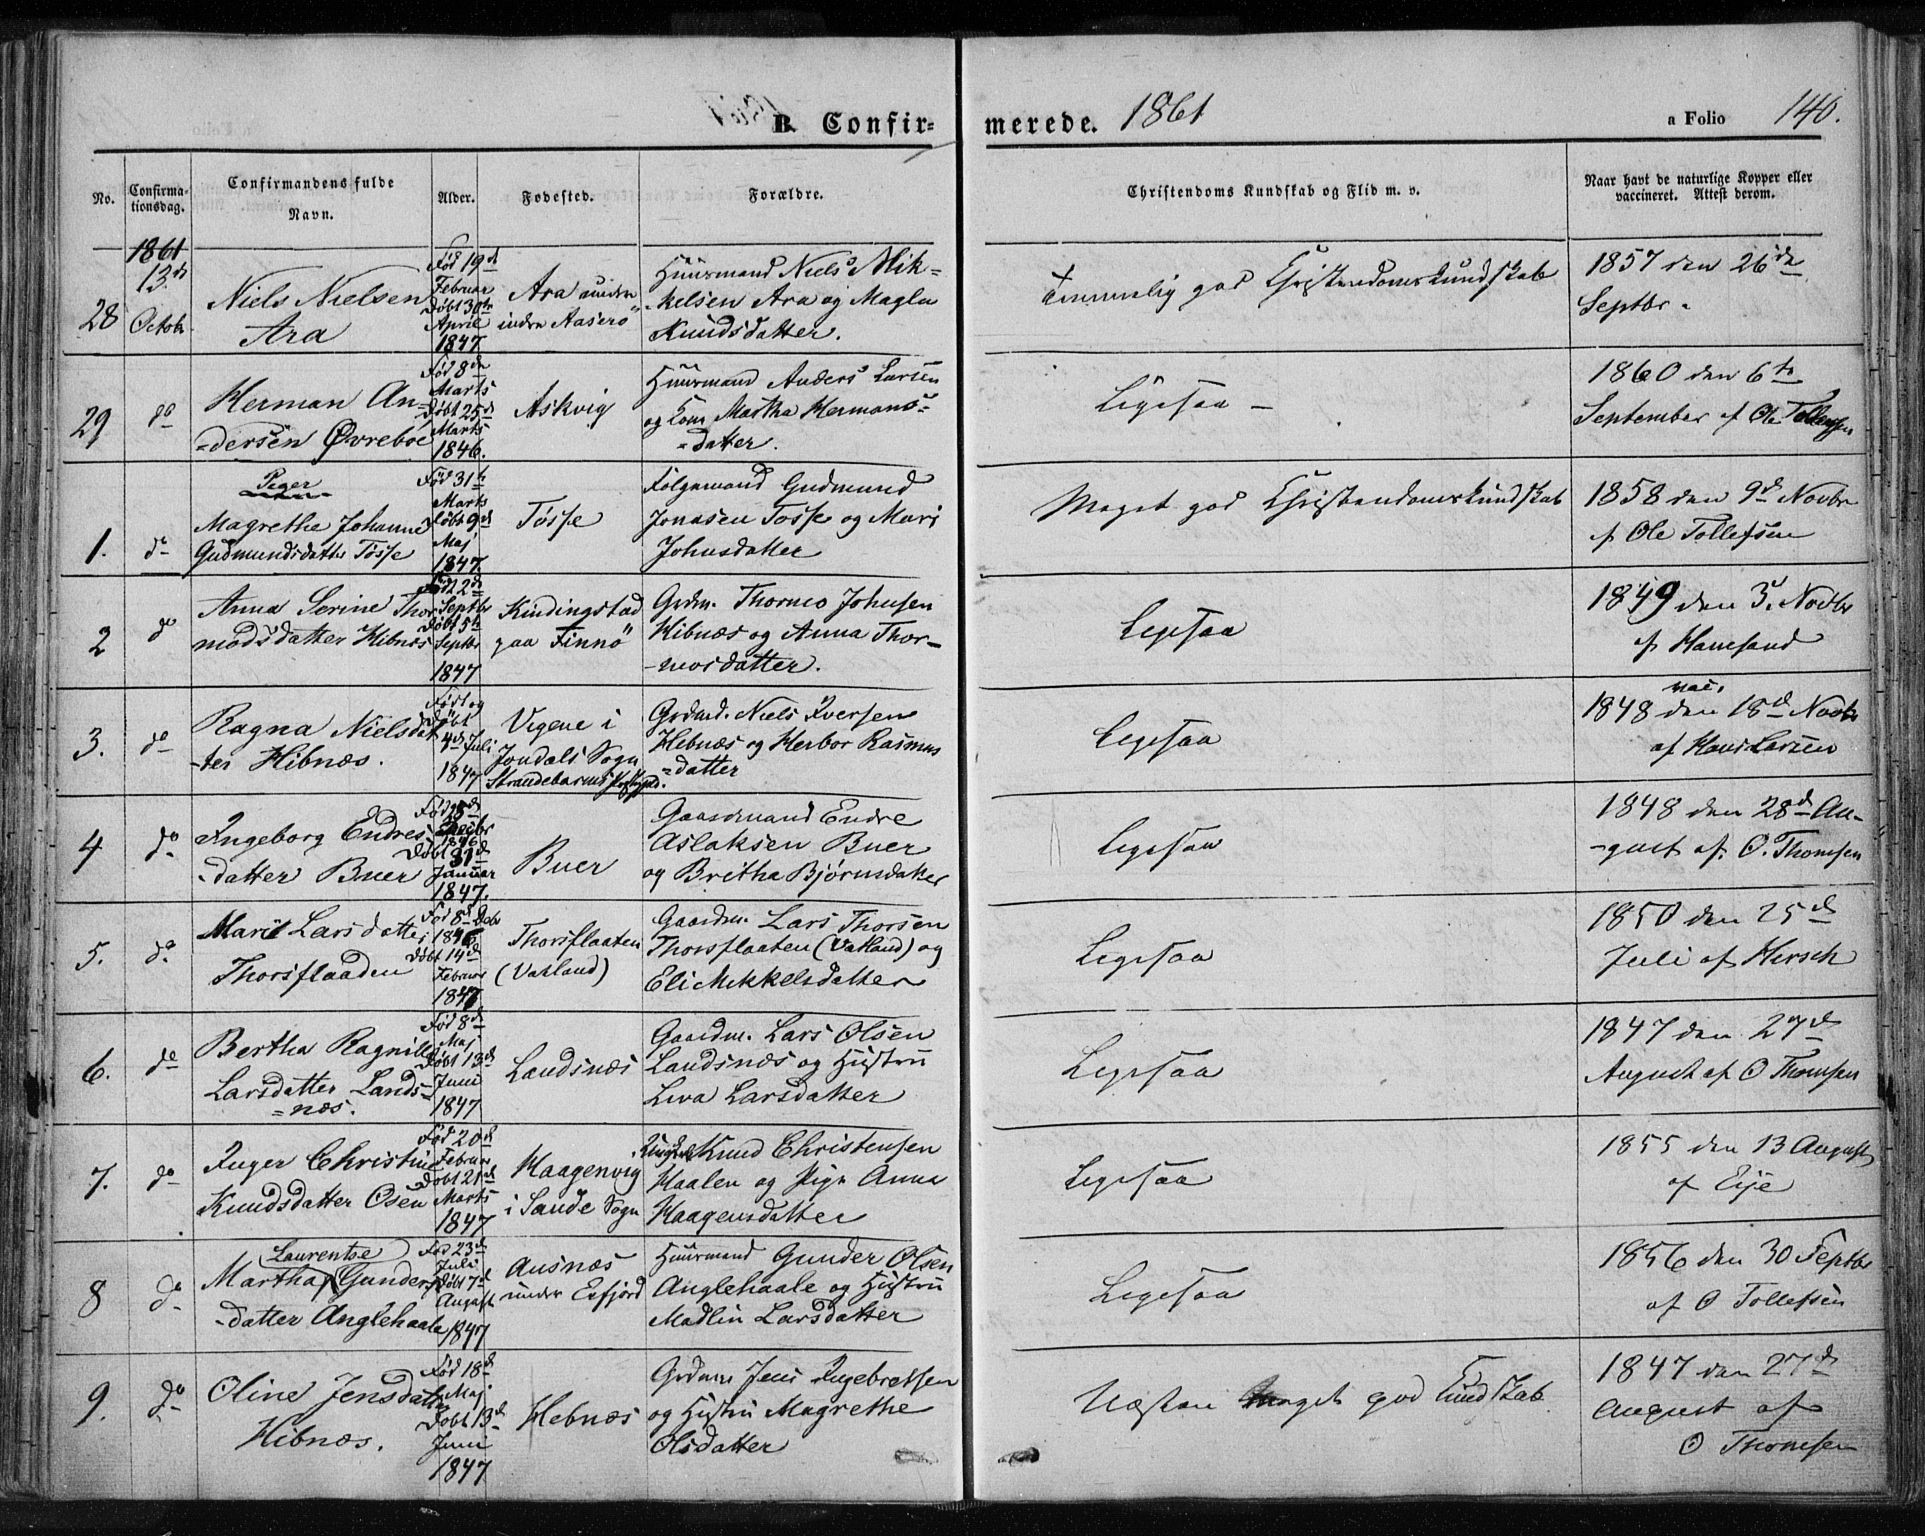 B. Confirmerede. 1861
a Folio 140.
No.
Confirmationsdag.
Confirmandens fulde Navn.
Alder.
Fødested.
Forældre.
Christendoms Kundskab og Flid m. v.
Naar havt de naturlige Kopper eller vaccineret. Attest derom.
1861
13d
Octob
28
Niels Nielsen
Ara
Fød 19d
Februar
Døbt 30te
April
1847
Ara under
indre Aaserø
Huusmand Niels Mik=
-kelsen Ara og Magla
Knudsdatter.
Temmelig god Christendomskundskab
1857 den 26de
Septbr.
29
do
Herman An-
=dersen Øvreboe
Fød 8de
Marts
Døbt 25d
Marts
1846.
Askvig
Huusmand Anders Larsen
og Kone Martha Hermans=
=datter.
Ligesaa -
1860 den 6te
September af Ole Tollefsen
Piger
1.
do
Magrethe Johanne
Gudmundsdatter Tøsse
Fød 31te
Marts
Døbt 9d
Maj
1847.
Tøsse
Følgemand Gudmund
Jonasen Tøsse og Mari
Johnsdatter
Meget god Christendomskundskab
1858 den 9d Novbr
af Ole Tollefsen
2
do
Anna Serine Thor
modsdatter Hibnæs
Fød 2d
Septbr
Døbt 5te
Septbr
1847
Kindingstad
paa Finnö
Grdm. Thormo Johnsen
Hibnæs og Anna Thor-
-mosdatter.
Ligesaa
1849 den 3. Novbr
af Hanesand
3.
do
Ragna Nielsdat
-ter Hibnæs.
Født og
døbt
4d Juli
1847
Vigene i
Jondals Sogn
Strandebarms Præstgjæld.
Grdmd. Niels Iversen
Hebnæs og Herbor Rasmus
=datter
Ligesaa
vac.
1848 den 18d Novbr
af Hans Larsen
4
do
Ingeborg Endres
-datter Buer
Døbt 31d
Januar
1847.
Buer
Gaardmand Endre
Aslaksen Buer
og Britha Bjørnsdatter
Ligesaa
1848 den 28d Au-
-gust af O. Thomsen
5.
do
Marit Larsdatter
Thorsflaaden
Fød 8d Debr
1846
Døbt 14d
Februar
1847
Thorsflaaten
(Vatland)
Gaardm. Lars Thorsen
Thorsflaaten (Vatland) og
Eli Mikkelsdatter
Ligesaa
1850 den 25d
Juli af Hirsch
6.
do
Bertha Ragnille
Larsdatter Lands-
=næs.
Fød 8d
Maj
Døbt 13d
Juni
1847
Landsnæs
Gaardm. Lars Olsen
Landsnæs og Hustru
Liva Larsdatter
Ligesaa
1847 den 27d
August af O Thomsen
7.
do
Inger Christine
Knudsdatter Osen
Fød 20d
Februar
Døbt 21d
Marts
1847
Haagenvig
i Sande Sogn
Knud Christensen
Haalen og Pige Anna
Haagensdatter
Ligesaa
1855 den 13 August
af Eije
8
do
Laurentse
Martha Gunders
-datter Anglehaale
Fød 23d
Juli
Døbt 7d
August
1847
Ausnæs
under Esfjord
Huusmand Gunder Olsen
Anglehaale og Hustru
Madlin Larsdatter
Ligesaa
1856 den 30 Septbr
af O Tollefsen
9.
do
Oline Jensdatter
Hibnæs.
Fød 18d
Maj
Døbt 13d
Juni
1847
Hebnæs
Grdm Jens Ingebretsen
og Hustru Magrethe
Olsdatter
Næsten meget god Kundskab
1847 den 27d
August af
O Thomsen